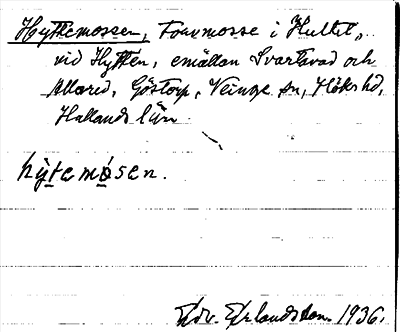 Hyttemossen, Torvmosse i Hultet,
vid Hytten, emellan Svartavad och
Allared, Göstorp, Veinge sn, Höks hd,
Hallands län.
hỳtemǿsen.
Edv. Erlandsson. 1936.